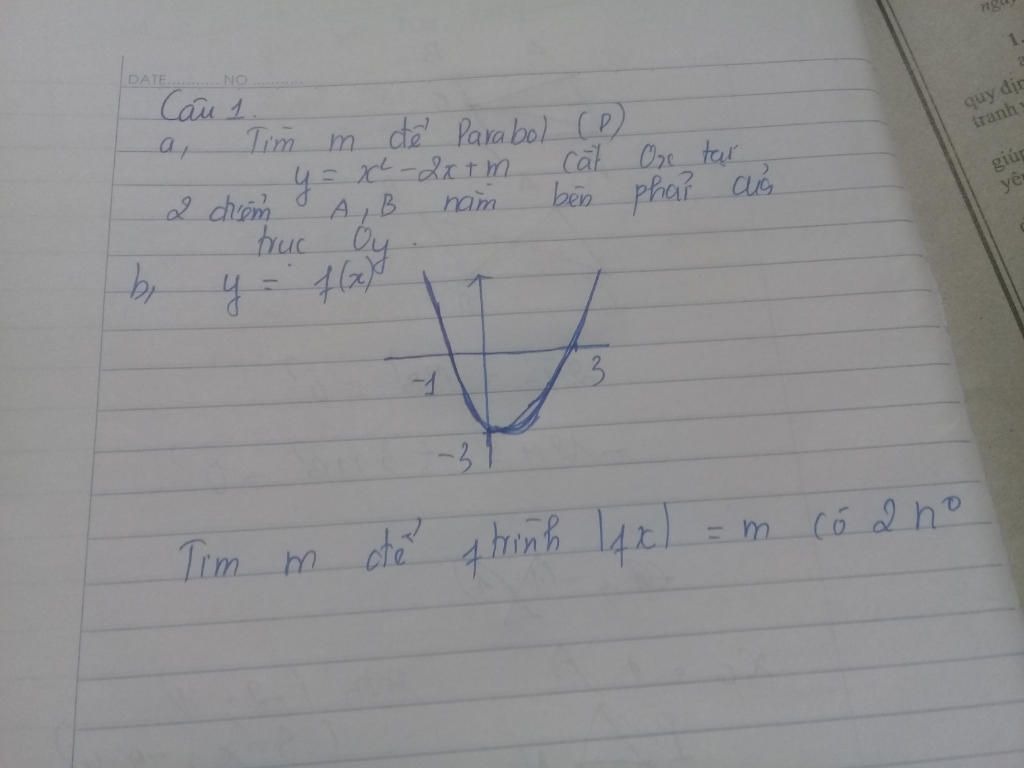 DATE............ NO ............
Câu 1.
a, Tìm m để Parabol (P)
y = x² - 2x + m cắt Ox tại
2 điểm A, B nằm bên phải của
trục Oy.
b, y = f(x)
-1
3
-3
Tìm m để ptrình |fx| = m có 2 n⁰
1.
quy địn
tranh
giúp
yê